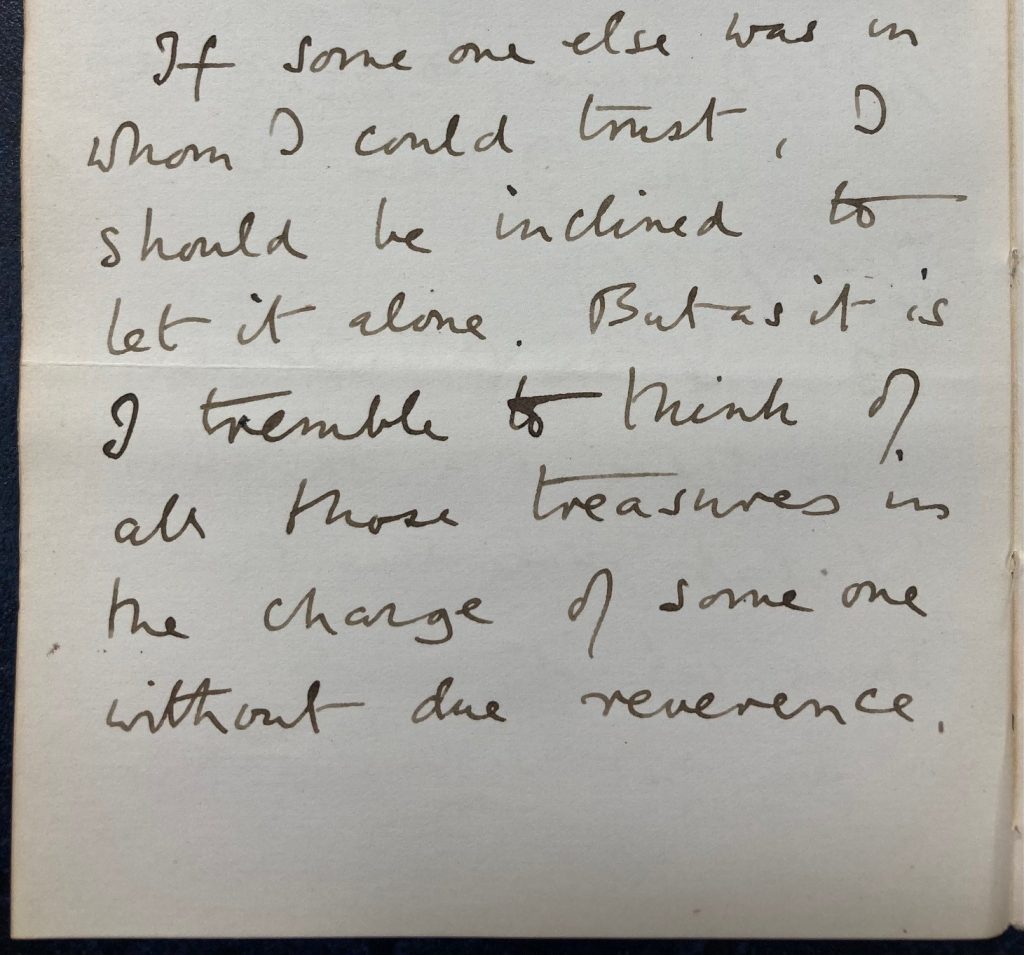 If some one else was in
whom I could trust, I
should be inclined to
let it alone. But as it is
I tremble to think of
all those treasures in
the charge of some one
without due reverence.